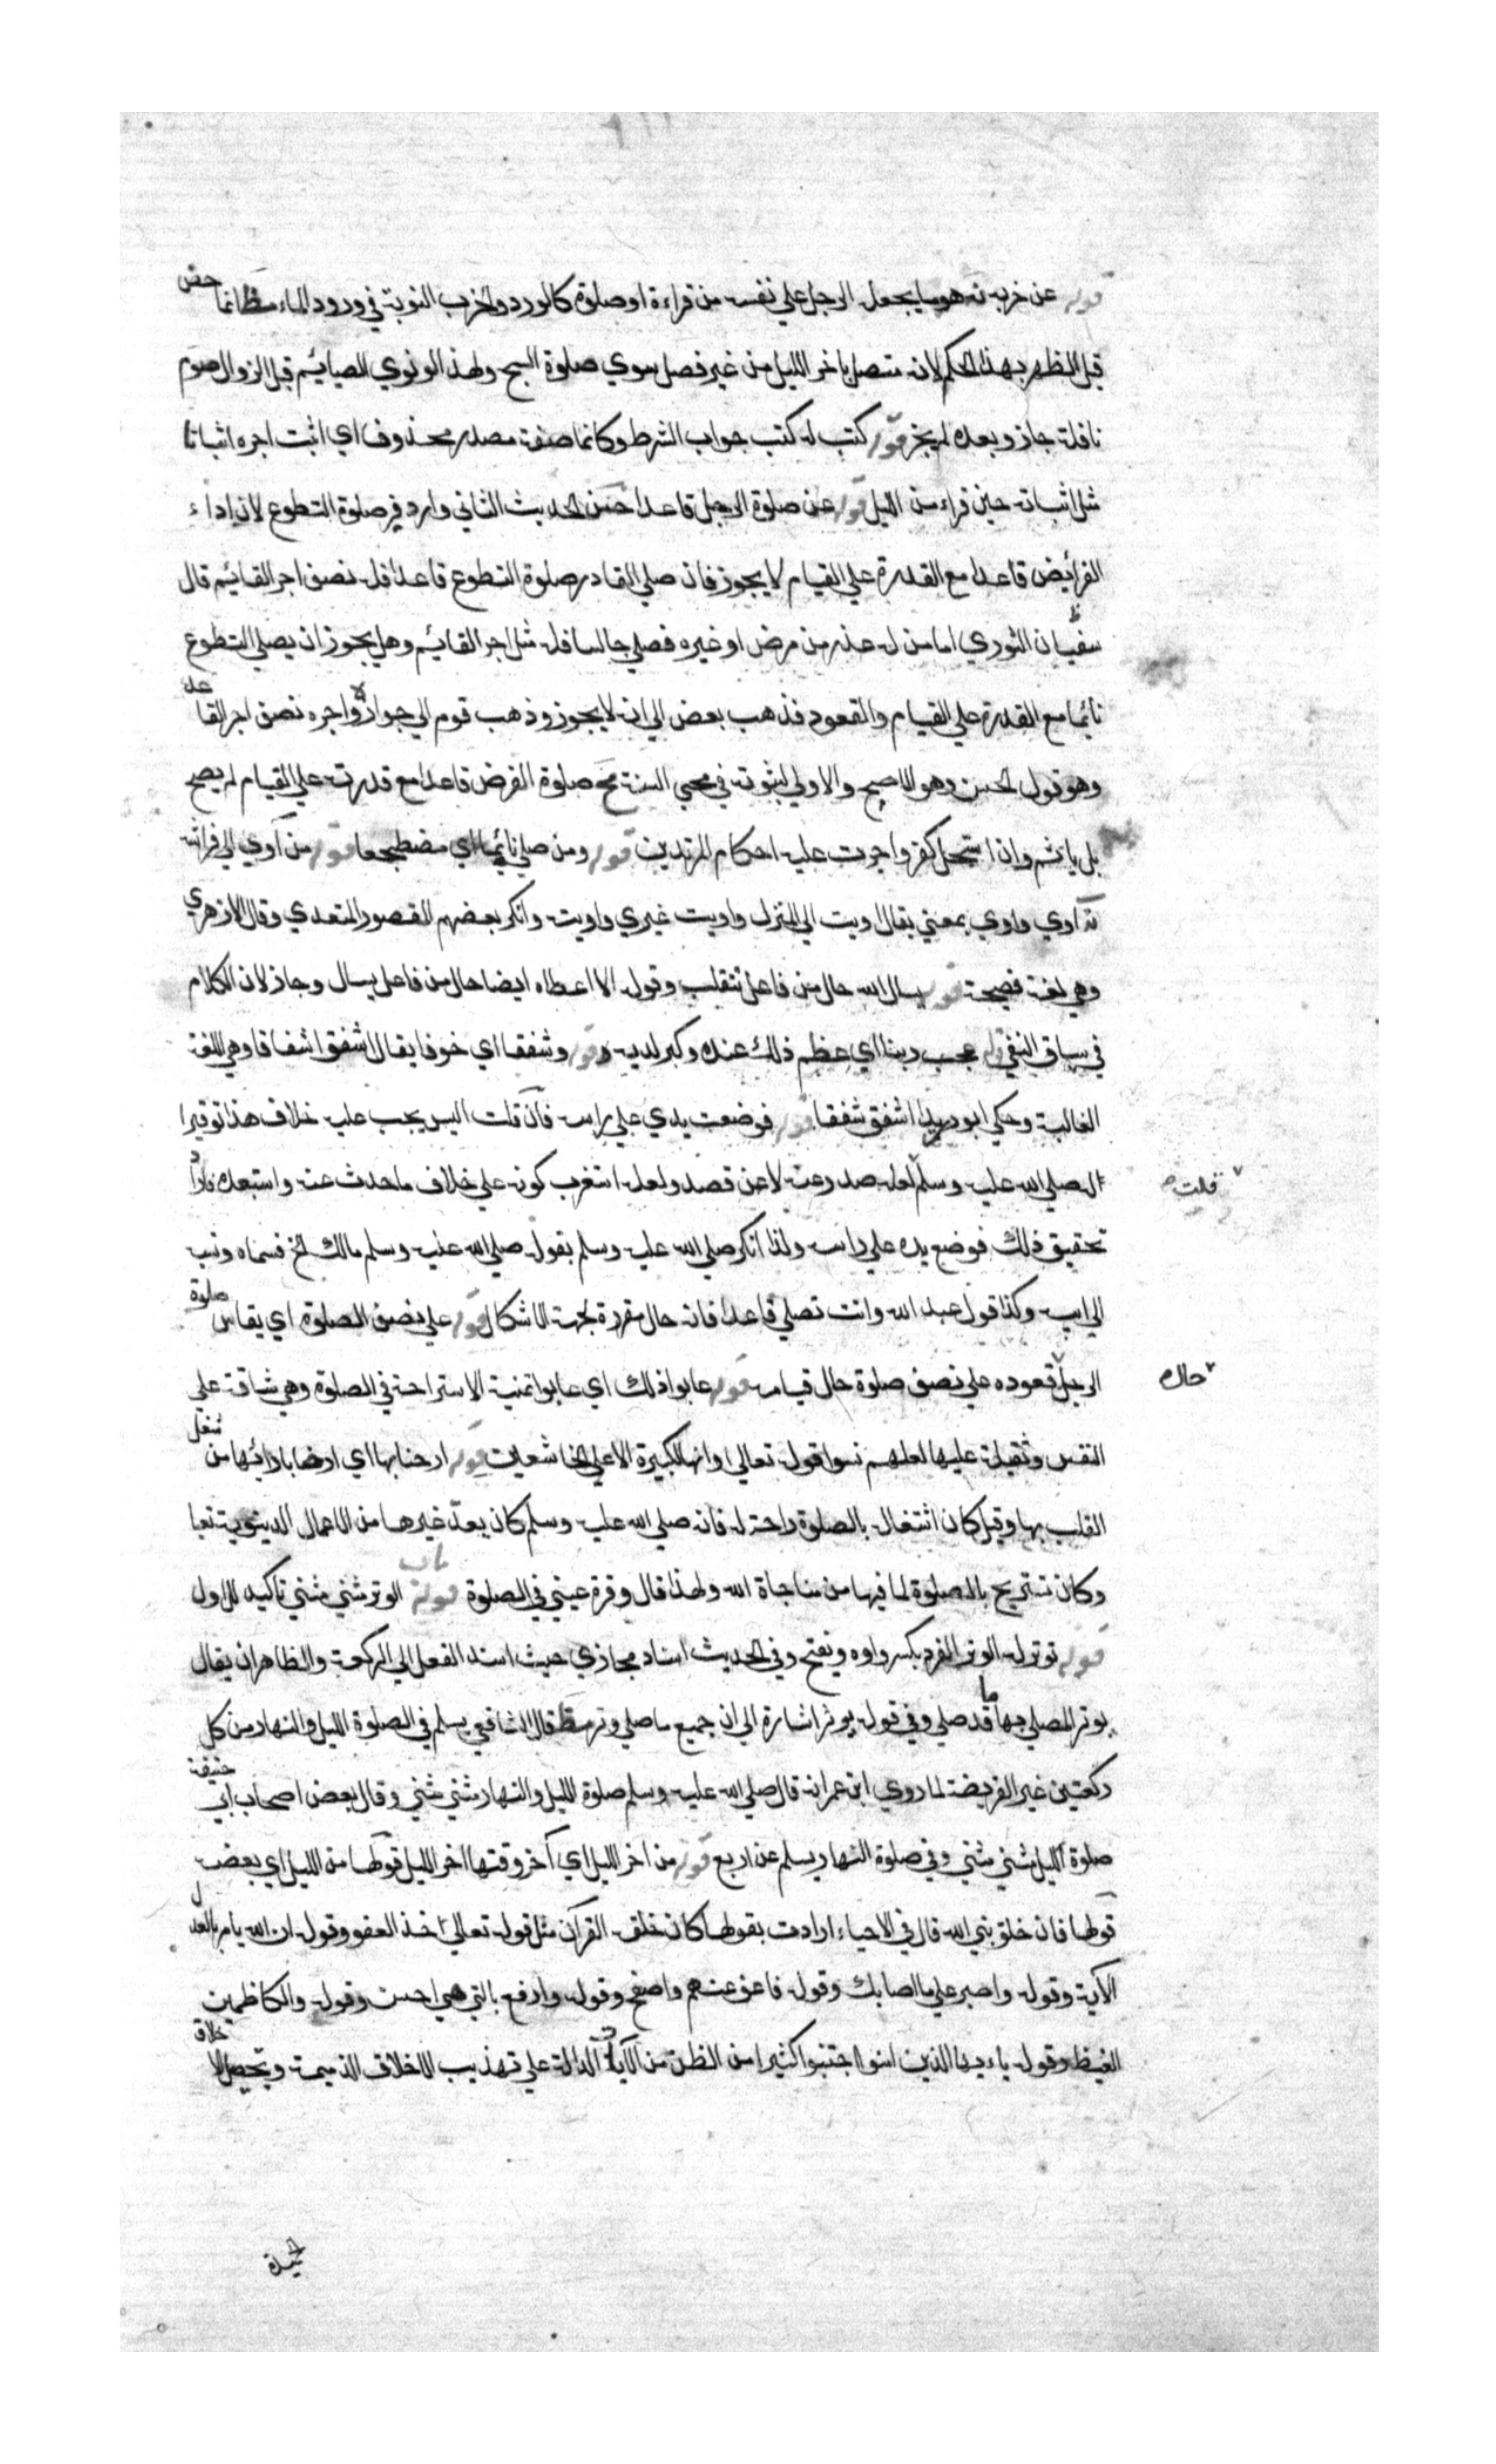 قوله عن حزبه نه هو ما يجعل الرجل علي نفسه من قراءة او صلوة كالورد والحزب النوبة في ورود الماء مظ انما خص
قبل الظهر بهذا الحكم لانه متصل باخر الليل من غير فصل سوي صلوة الصبح ولهذا لو نوي الصايم قبل الزوال صوم
نافلة جاز وبعده لم يجز قوله كتب له كتب جواب الشرط وكانما صفة مصدر محذوف اي اثبت اجره اثباتا
مثل اثباته حين قراءه من الليل قوله عن صلوة الرجل قاعدا حسن الحديث الثاني وارد في صلوة التطوع لان اداء
الفرايض قاعدا مع القدرة علي القيام لا يجوز فان صلي القادر صلوة التطوع قاعدا فله نصف اجر القايم قال
سفيان الثوري اما من له عذر من مرض او غيره فصلي جالسا فله مثل اجر القايم وهل يجوز ان يصلي التطوع
نائما مع القدرة علي القيام والقعود فذهب بعض الي انه لا يجوز وذهب قوم الي جوازه واجره نصف اجر القاعد
وهو قول الحسن وهو الاصح والاولي لثبوته في محيي السنة مح صلوة الفرض قاعدا مع قدرته علي القيام لم يصح
بل ياثم وان استحل كفر واجرت عليه احكام المرتدين قوله ومن صلي نائما اي مضطجعا قوله من آوي الي فراشه
نه آوي واوي بمعني يقال اويت الي المنزل واويت غيري واويته وانكر بعضهم المقصور المتعدي وقال الازهري
وهي لغة فصيحة قوله يسال الله حال من فاعل تتقلب وقوله الا اعطاه ايضا حال من فاعل يسال وجاز لان الكلام
في سياق النفي قوله عجب ربنا اي عظم ذلك عنده وكبر لديه قوله وشفقا اي خوفا يقال اشفق اشفاقا وهي اللغة
الغالبة وحكي ابو دريد اشفق شفقا قوله فوضعت يدي علي راسه فان قلت اليس يجب عليه خلاف هذا توقيرا
له صلي الله عليه وسلم قلت لعله صدر عنه لا عن قصد ولعله استغرب كونه علي خلاف ما حدث عنه واستبعده فاراد
تحقيق ذلك فوضع يده علي راسه ولذا انكر صلي الله عليه وسلم بقوله صلي الله عليه وسلم مالك الخ فسماه ونسبه
الي ابيه وكذا قول عبد الله وانت تصلي قاعدا فانه حال مقررة لجهة الاشكال قوله علي نصف الصلوة اي يقاس صلوة
الرجل حال قعوده علي نصف صلوة حال قيامه قوله عابوا ذلك اي عابوا تمنية الاستراحة في الصلوة وهي شاقة علي
النفس وثقيلة عليها لعلهم نسوا قوله تعالي وانها لكبيرة الا علي الخاشعين قوله ارحنا بها اي ارحنا بادائها من شغل
القلب بها وقيل كان اشتغاله بالصلوة راحة له فانه صلي الله عليه وسلم كان يعد غيرها من الاعمال الدينوية تعبا
وكان تستريح بالصلوة لما فيها من مناجاة الله ولهذا قال وقرة عيني في الصلوة باب قوله الوتر مثني مثني تاكيد للاول
قوله توتر له الوتر الفرد بكسر واوه ونفتح وفي الحديث اسناد مجازي حيث اسند الفعل الي الركعة والظاهر ان يقال
يوتر المصلي بها ما قد صلي وفي قوله يوتر اشارة الي ان جميع ما صلي وتر مظ قال الشافعي يسلم في الصلوة الليل والنهار من كل
ركعتين غير الفريضة لما روي ابن عمر انه قال صلي الله عليه وسلم صلوة الليل والنهار مثني مثني وقال بعض اصحاب ابي حنيفة
صلوة الليل مثني مثني وفي صلوة النهار يسلم عن اربع قوله من اخر الليل اي آخر وقتها اخر الليل قولها من الليل اي بعضه
قولها فان خلق نبي الله قال في الاحياء ارادت بقولها كان خلقه القرآن مثل قوله تعالي خذ العفو وقوله ان الله يامر بالعدل
الآية وقوله واصبر علي ما اصابك وقوله فاعف عنهم واصفح وقوله وادفع بالتي هي احسن وقوله والكاظمين
الغيظ وقوله ياءيها الذين امنوا اجتنبوا كثيرا من الظن من الآيات الدالة علي تهذيب الاخلاق الذميمة وتحصيل الاخلاق
الحميدة